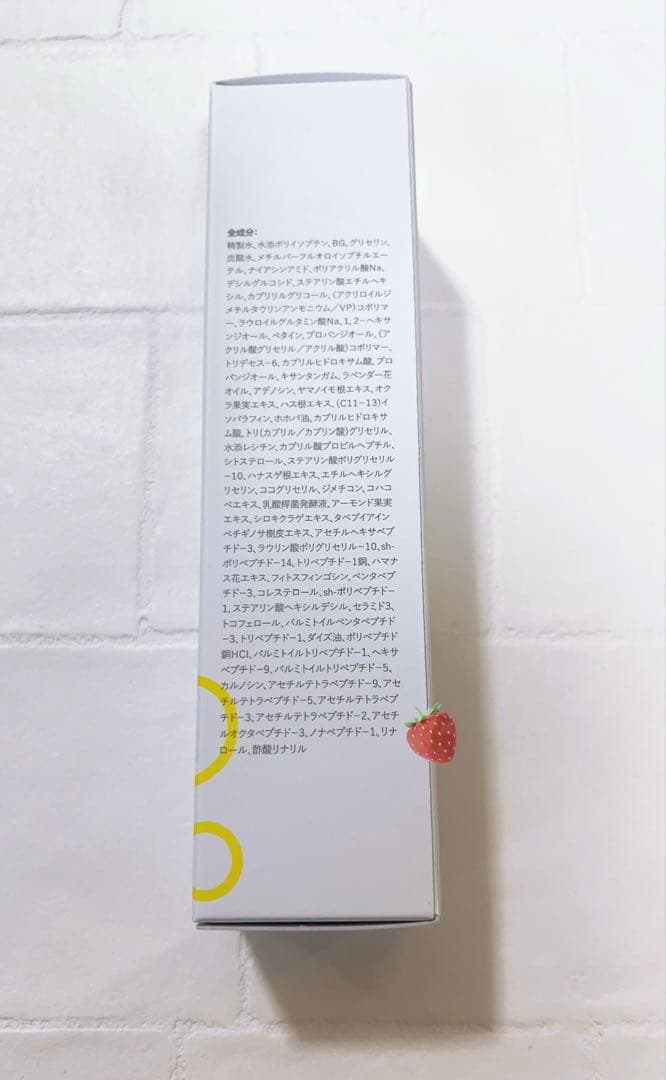 全成分:
精製水、水添ポリイソブテン、BG、グリセリン、
炭酸水、メチルパーフルオロイソブチルエー
テル、ナイアシンアミド、ポリアクリル酸Na、
デシルグルコシド、ステアリン酸エチルヘキ
シル、カプリリルグリコール、(アクリロイルジ
メチルタウリンアンモニウム/VP)コポリマ
ー、ラウロイルグルタミン酸Na、1，2-ヘキサ
ンジオール、ベタイン、プロパンジオール、(ア
クリル酸グリセリル/アクリル酸)コポリマー、
トリデセス-6、カプリルヒドロキサム酸、プロ
パンジオール、キサンタンガム、ラベンダー花
オイル、アデノシン、ヤマノイモ根エキス、オク
ラ果実エキス、ハス根エキス、(C11-13)イ
ソパラフィン、ホホバ油、カプリルヒドロキサ
ム酸、トリ(カプリル/カプリン酸)グリセリル、
水添レシチン、カプリル酸プロピルヘプチル、
シトステロール、ステアリン酸ポリグリセリル
-10、ハナスゲ根エキス、エチルヘキシルグ
リセリン、ココグリセリル、ジメチコン、コハコ
ベエキス、乳酸桿菌発酵液、アーモンド果実
エキス、シロキクラゲエキス、タベブイアイン
ペチギノサ樹皮エキス、アセチルヘキサペプ
チド-3、ラウリン酸ポリグリセリル-10、sh-
ポリペプチド-14、トリペプチド-1銅、ハマナ
ス花エキス、フィトスフィンゴシン、ペンタペプ
チド-3、コレステロール、sh-ポリペプチド-
1、ステアリン酸ヘキシルデシル、セラミド3、
トコフェロール、パルミトイルペンタペプチド
-3、トリペプチド-1、ダイズ油、ポリペプチド
銅HCl、パルミトイルトリペプチド-1、ヘキサ
ペプチド-9、パルミトイルトリペプチド-5、
カルノシン、アセチルテトラペプチド-9、アセ
チルテトラペプチド-5、アセチルテトラペプ
チド-3、アセチルテトラペプチド-2、アセチ
ルオクタペプチド-3、ノナペプチド-1、リナ
ロール、酢酸リナリル